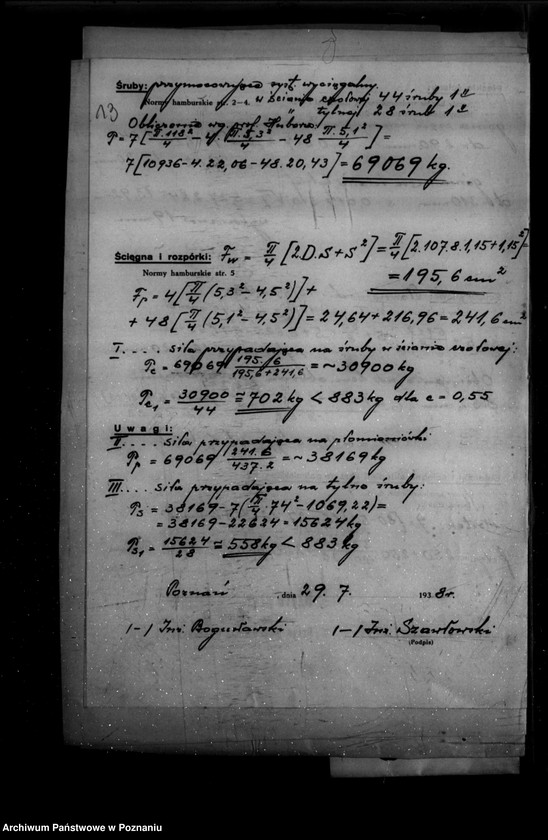 13
Śruby: przymocowujące syst. wyciągalny.
Normy hamburskie str. 2—4. w ścianie czołowej 44 śruby 1"
" tylnej 28 śrub 1"
Obliczenie wg. prof. Hubera:
P = 7[π.118²/4 - 4. π.5,3²/4 - 48 π.5,1²/4] =
7[10936 - 4.22,06 - 48.20,43] = 69069 kg.
Ścięgna i rozpórki: Fw = π/4 [2.D.s + s²] = π/4 [2.107,8.1,15 + 1,15²] =
Normy hamburskie str. 5
= 195,6 cm²
Fp = 4[π/4 (5,3² - 4,5²)] +
+ 48[π/4 (5,1² - 4,5²)] = 24,64 + 216,96 = 241,6 cm²
I. . . . siła przypadająca na śruby w ścianie czołowej:
Pc = 69069 195,6/195,6+241,6 = ~30900 kg
Pc1 = 30900/44 = 702 kg < 883 kg dla c = 0,55
Uwagi:
II. . . . siła przypadająca na płomieniówki
Pp = 69069 241,6/437,2 = ~38169 kg
III. . . . siła przypadająca na tylne śruby:
P3 = 38169 - 7(π/4 . 74² - 1069,22) =
= 38169 - 22624 = 15624 kg
P31 = 15624/28 = 558 kg < 883 kg
Poznań , dnia 29. 7. 1938 r.
/-/ Inż. Bogusławski /-/ Inż. Szawłowski
(Podpis)
Archiwum Państwowe w Poznaniu